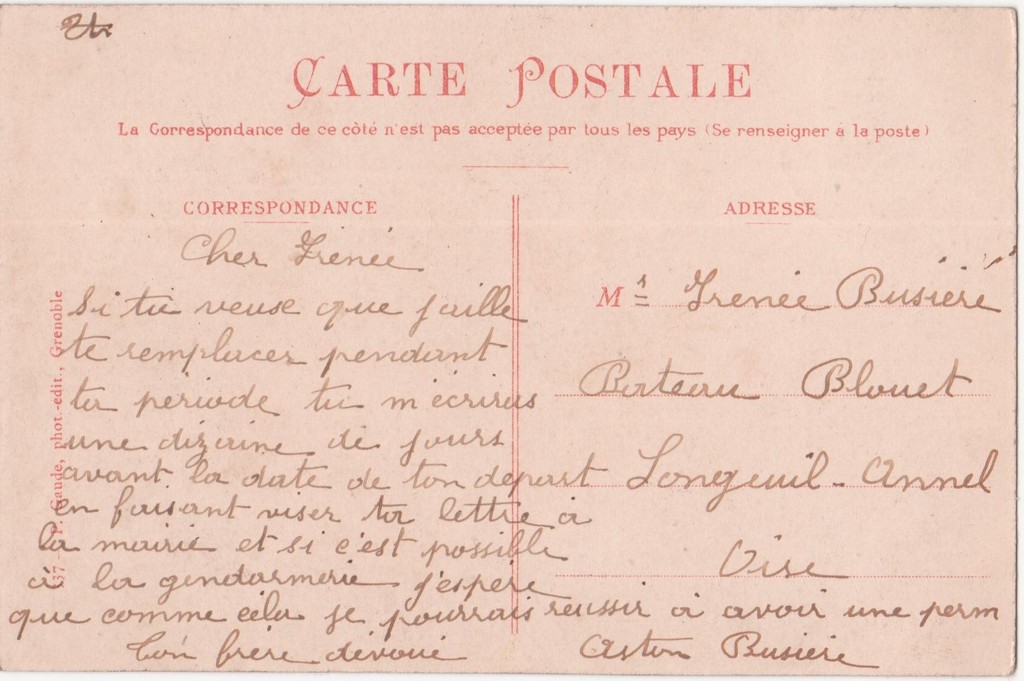 CARTE POSTALE
La Correspondance de ce côté n'est pas acceptée par tous les pays (Se renseigner à la poste)
CORRESPONDANCE
Cher Irénée
Si tu veuse que j'aille
te remplacer pendant
ta période tu m'écriras
une dizaine de jours
avant la date de ton depart
en faisant viser ta lettre a
la mairie et si c'est possible
à la gendarmerie j'espère
que comme cela je pourrais réussir a avoir une perm
Ton frère dévoué Aston Busiere
ADRESSE
Mr Irenée Busière
Bateau Blouet
Longeuil-Annel
Oise
P. Gaude, phot.-edit., Grenoble